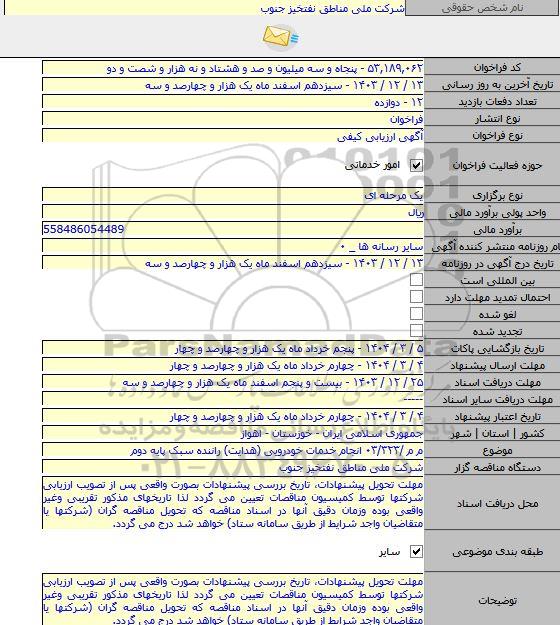 نام شخص حقوقی شرکت ملی مناطق نفتخیز جنوب
کد فراخوان ۵۳,۱۸۹,۰۶۲ - پنجاه و سه میلیون و صد و هشتاد و نه هزار و شصت و دو
تاریخ آخرین به روز رسانی ۱۳ / ۱۲ / ۱۴۰۳ - سیزدهم اسفند ماه یک هزار و چهارصد و سه
تعداد دفعات بازدید ۱۲ - دوازده
نوع انتشار فراخوان
نوع فراخوان آگهی ارزیابی کیفی
حوزه فعالیت فراخوان امور خدماتی
نوع برگزاری یک مرحله ای
واحد پولی برآورد مالی ریال
برآورد مالی 558486054489
ام روزنامه منتشر کننده آگهی سایر رسانه ها _ ۰
تاریخ درج آگهی در روزنامه ۱۳ / ۱۲ / ۱۴۰۳ - سیزدهم اسفند ماه یک هزار و چهارصد و سه
بین المللی است
احتمال تمدید مهلت دارد
لغو شده
تجدید شده
تاریخ بازگشایی پاکات ۵ / ۳ / ۱۴۰۴ - پنجم خرداد ماه یک هزار و چهارصد و چهار
مهلت ارسال پیشنهاد ۴ / ۳ / ۱۴۰۴ - چهارم خرداد ماه یک هزار و چهارصد و چهار
مهلت دریافت اسناد ۲۵ / ۱۲ / ۱۴۰۳ - بیست و پنجم اسفند ماه یک هزار و چهارصد و سه
مهلت دریافت سایر اسناد -----
تاریخ اعتبار پیشنهاد ۴ / ۳ / ۱۴۰۴ - چهارم خرداد ماه یک هزار و چهارصد و چهار
کشور | استان | شهر جمهوری اسلامی ایران - خوزستان - اهواز
موضوع م م /۰۳/۳۲۳ انجام خدمات خودرویی (هدایت) راننده سبک پایه دوم
دستگاه مناقصه گزار شرکت ملی مناطق نفتخیز جنوب
محل دریافت اسناد مهلت تحویل پیشنهادات، تاریخ بررسی پیشنهادات بصورت واقعی پس از تصویب ارزیابی
شرکتها توسط کمیسیون مناقصات تعیین می گردد لذا تاریخهای مذکور تقریبی وغیر
واقعی بوده وزمان دقیق آنها در اسناد مناقصه که تحویل مناقصه گران (شرکتها یا
متقاضیان واجد شرایط از طریق سامانه ستاد) خواهد شد درج می گردد.
طبقه بندی موضوعی سایر
توضیحات مهلت تحویل پیشنهادات، تاریخ بررسی پیشنهادات بصورت واقعی پس از تصویب ارزیابی
شرکتها توسط کمیسیون مناقصات تعیین می گردد لذا تاریخهای مذکور تقریبی وغیر
واقعی بوده وزمان دقیق آنها در اسناد مناقصه که تحویل مناقصه گران (شرکتها یا
متقاضیان واجد شرایط از طریق سامانه ستاد) خواهد شد درج می گردد.